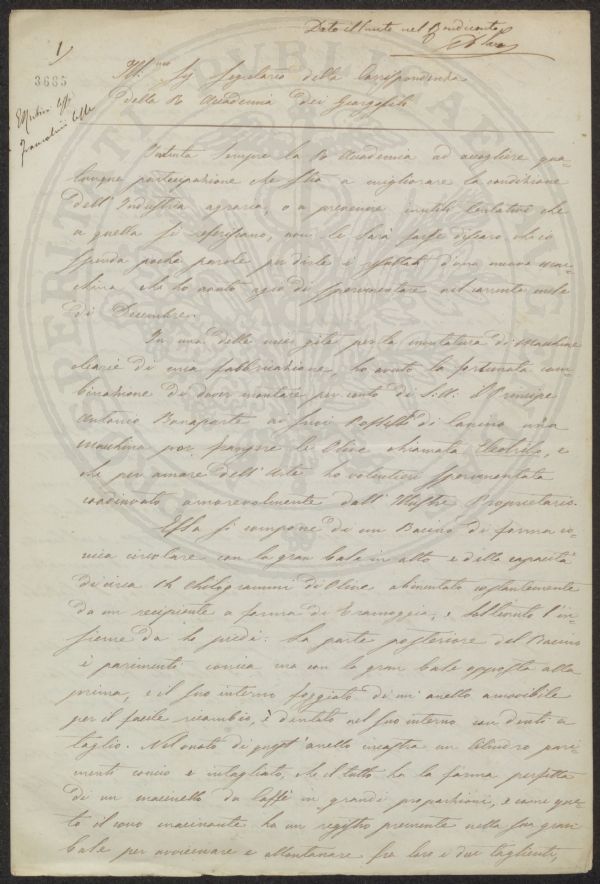 Dato il sunto nel Rendiconto
1
3685
Ill.mo Sig Segretario della Corrispondenza
della R Accademia dei Georgofili
Intenta sempre la R Accademia ad accogliere qua-
lunque partecipazione che tenda a migliorare la condizione
dell'Industria agraria, o a prevenire inutili tentativi che
a quella si riferiscano, non le sarà forse discaro che io
spenda poche parole per dirle i resultati d'una nuova mac-
china che ho avuto agio di sperimentare nel corrente mese
di Decembre.
In una delle mie gite per la montatura di Macchine
olearie di mia fabbricazione ho avuto la fortunata com-
binazione di dover montare per conto di S.A. il Principe
Antonio Bonaparte ai suoi Possessi di Canino una
Macchina per frangere le Olive chiamata, e
che per amore dell'Arte ho volentieri sperimentata
coadiuvato amorevolmente dall'Illustre Proprietario.
Essa si compone di un Bacino di forma co-
nica circolare con la gran base in alto e della capacità
di circa 14 chilogrammi di Olive alimentato costantemente
da un recipiente a forma di Tramoggia, e sostenuto l'in-
sieme da tre piedi. La parte posteriore del Bacino
è parimenti conica ma con la gran base opposta alla
prima, e il suo interno foggiato di un anello amovibile
per il facile ricambio, è dentato nel suo interno con denti a
taglio. Nel vuoto di quest'anello incastra un Cilindro pari-
menti conico e intagliato, che il tutto ha la forma perfetta
di un macinello da Caffè in grandi proporzioni, e come que-
sto il cono macinante ha un registro premente nella sua gran
base per avvicinare e allontanare fra loro i due taglienti,